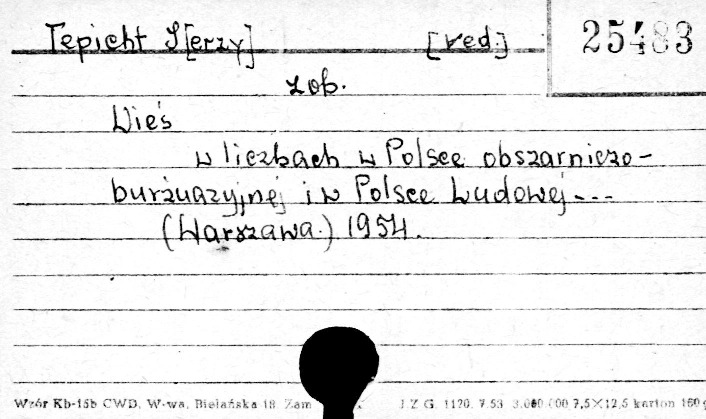 Tepicht J[erzy] [red.] 25483
zob.
Wieś
w liczbach w Polsce obszarniczo-
burżuazyjnej i w Polsce Ludowej...
(Warszawa.) 1954.
Wzór Kb-15b CWD, W-wa, Bielańska 18. Zam J.Z.G. 1120. 7.53 3.000.000 7,5×12,5 karton 160g